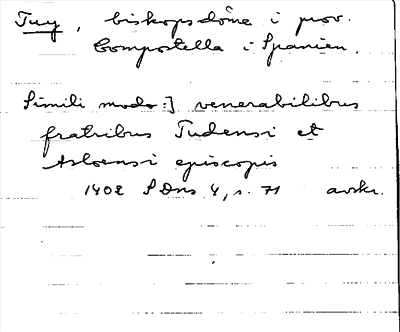 Tuy, biskopsdöme i prov.
Compostella i Spanien.
Simili modo :] venerabilibus
fratribus Tudensi et
Asloensi episcopis
1402 SDns 4, s. 71 avskr.